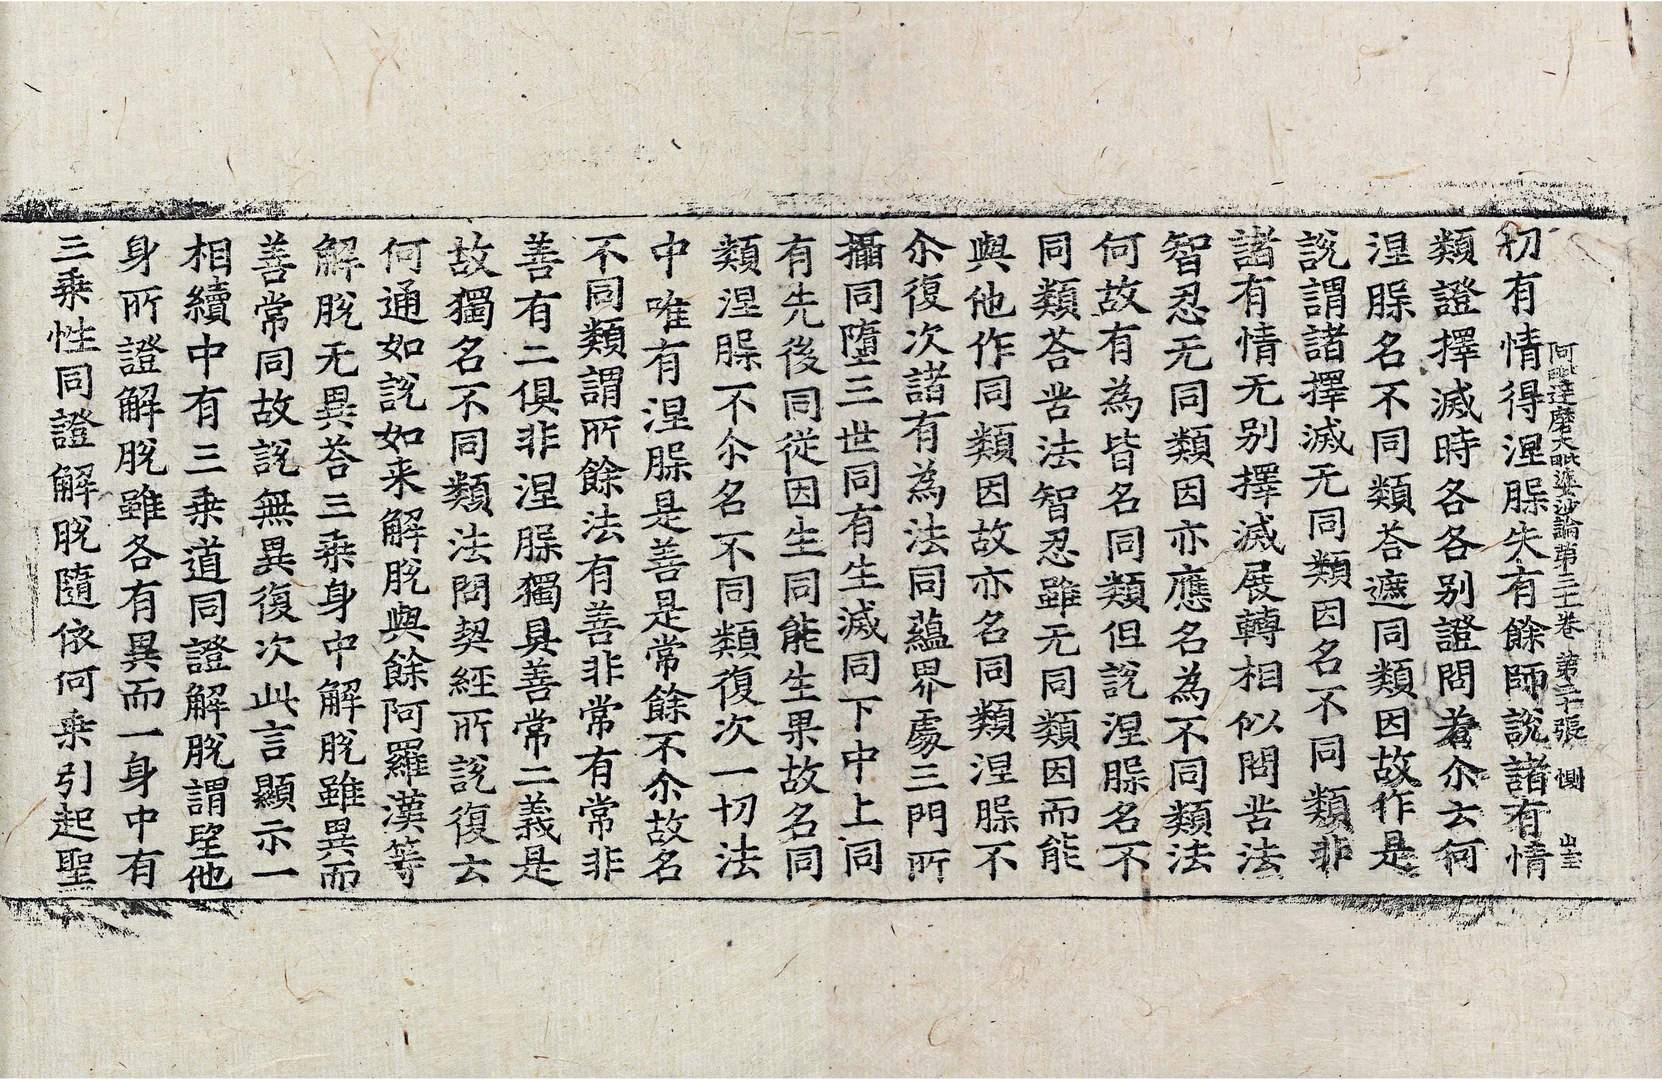 阿毗達磨大毗婆沙論第三十一卷 第二十張 惻
切有情得涅槃失有餘師說諸有情
類證擇滅時各各别證問若尒云何
涅槃名不同類荅遮同類因故作是
說謂諸擇滅无同類因名不同類非
諸有情无别擇滅展轉相似問苦法
智忍无同類因亦應名為不同類法
何故有為皆名同類但說涅槃名不
同類荅苦法智忍雖无同類因而能
與他作同類因故亦名同類涅槃不
尒復次諸有為法同蘊界處三門所
攝同墮三世同有生滅同下中上同
有先後同從因生同能生果故名同
類涅槃不尒名不同類復次一切法
中唯有涅槃是善是常餘不尒故名
不同類謂所餘法有善非常有常非
善有二俱非涅槃獨具善常二義是
故獨名不同類法問契經所說復云
何通如說如来解脫與餘阿羅漢等
解脫无異荅三乗身中解脫雖異而
善常同故說無異復次此言顯示一
相續中有三乗道同證解脫謂望他
身所證解脫雖各有異而一身中有
三乗性同證解脫隨依何乗引起聖